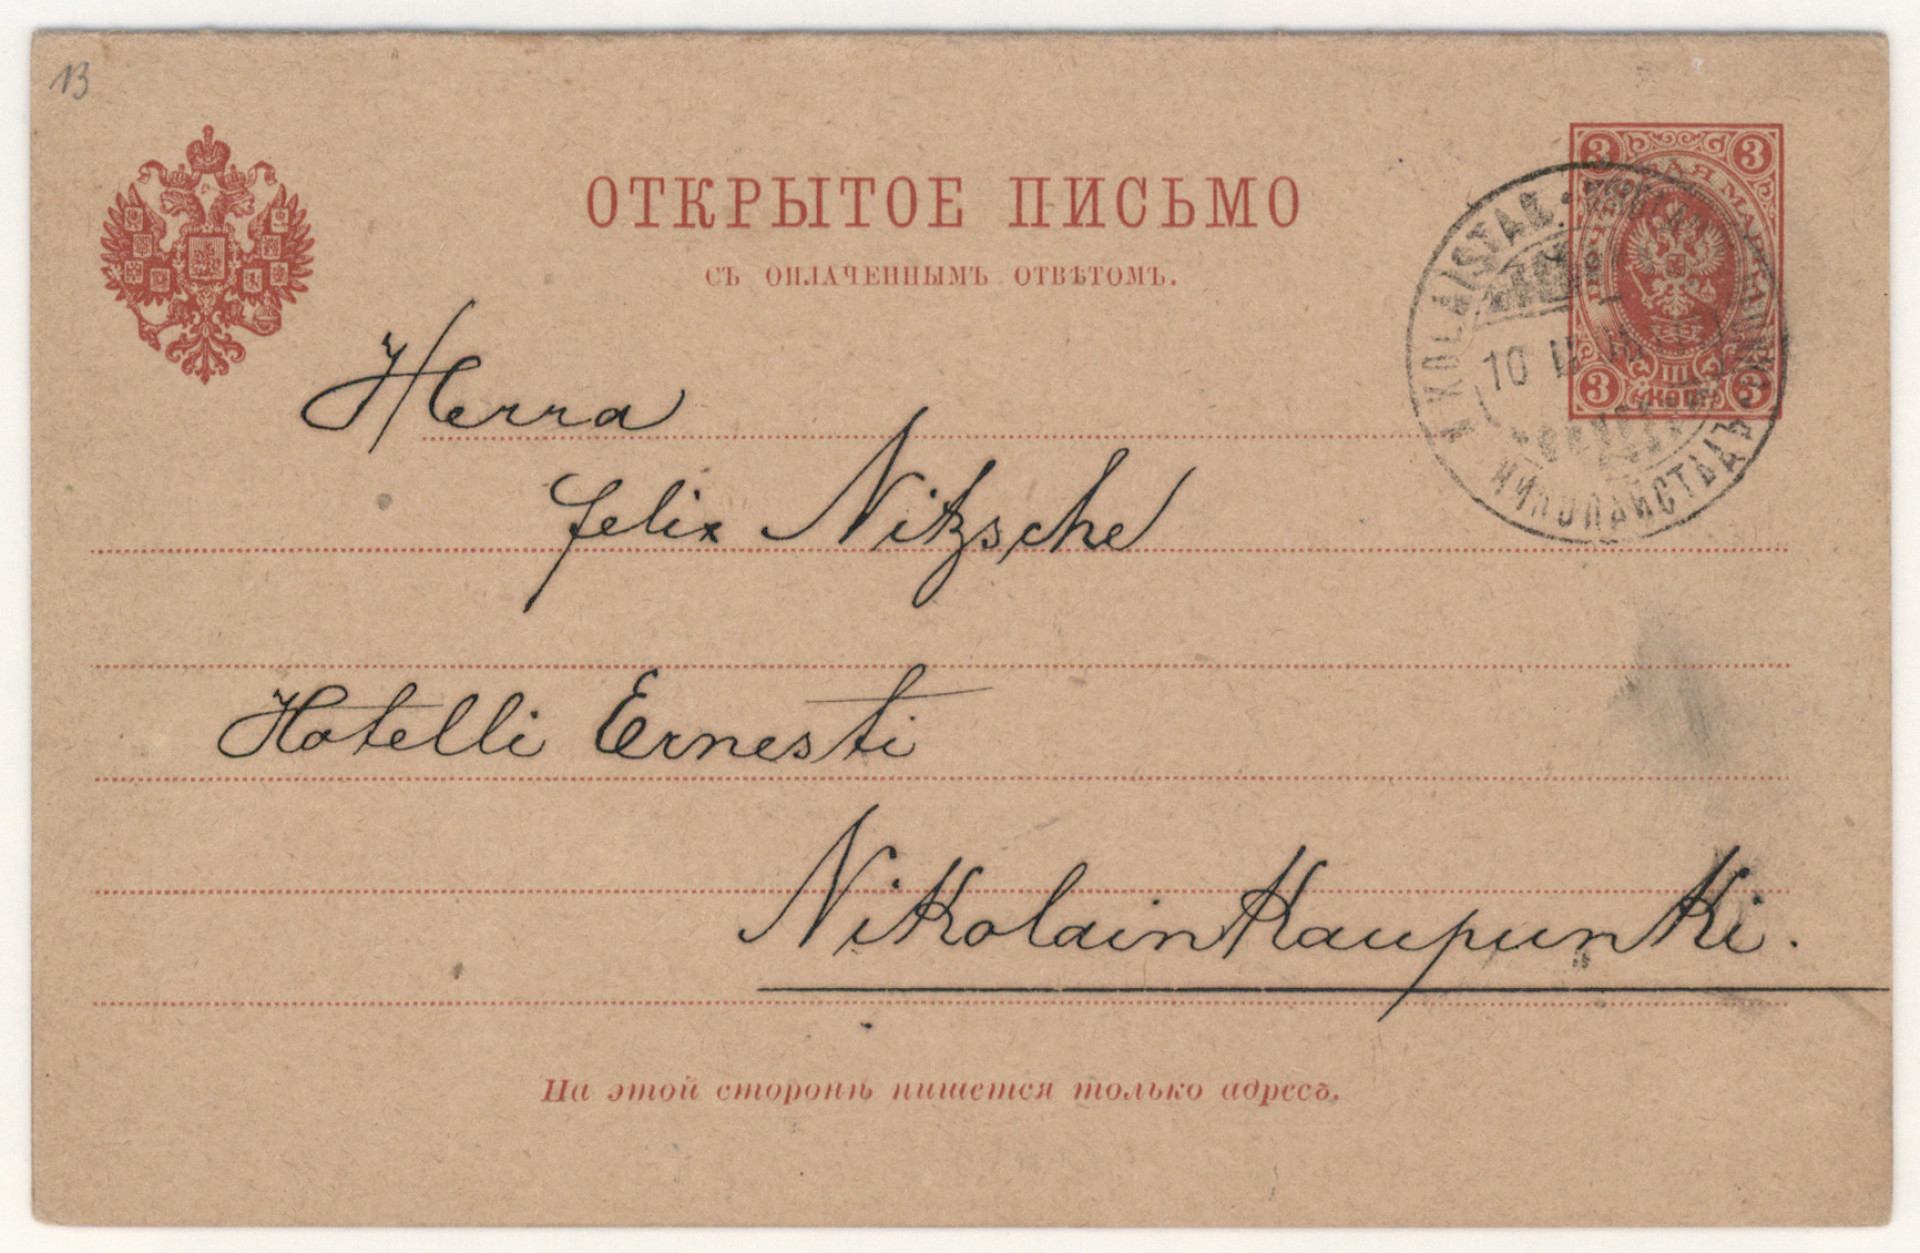 13
ОТКРЫТОЕ ПИСЬМО
СЪ ОПЛАЧЕННЫМЪ ОТВѢТОМЪ.
3 3
ПОЧТОВАЯ МАРКА
3 III 3
КОП.
NIKOLAISTAD
10
НИКОЛАЙСТАДЪ
Herra
Felix Nitzsche
Hotelli Ernesti
Nikolainkaupunki.
На этой сторонѣ пишется только адресъ.